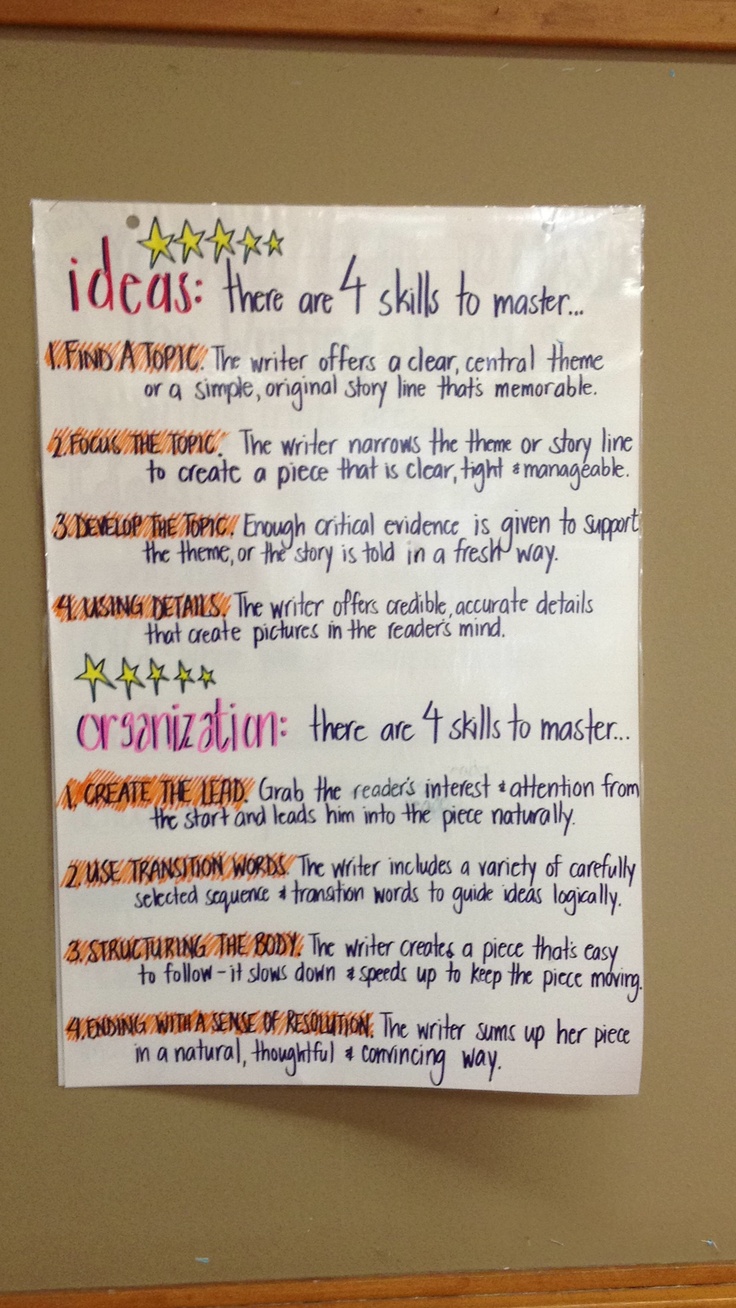 ideas: there are 4 skills to master...
1. FIND A TOPIC. The writer offers a clear, central theme
or a simple, original story line that's memorable.
2. FOCUS THE TOPIC. The writer narrows the theme or story line
to create a piece that is clear, tight & manageable.
3. DEVELOP THE TOPIC. Enough critical evidence is given to support
the theme, or the story is told in a fresh way.
4. USING DETAILS. The writer offers credible, accurate details
that create pictures in the reader's mind.
organization: there are 4 skills to master...
1. CREATE THE LEAD. Grab the reader's interest & attention from
the start and leads him into the piece naturally.
2. USE TRANSITION WORDS. The writer includes a variety of carefully
selected sequence & transition words to guide ideas logically.
3. STRUCTURING THE BODY. The writer creates a piece that's easy
to follow - it slows down & speeds up to keep the piece moving.
4. ENDING WITH A SENSE OF RESOLUTION. The writer sums up her piece
in a natural, thoughtful & convincing way.